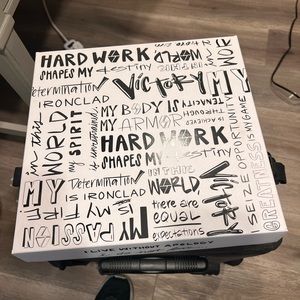 HARD WORK
SHAPES MY destiny
Determination
IRONCLAD
VICTORY
MY
in this
WORLD
MY SPIRIT
MY BODY IS
MY ARMOR
TENACITY
THROUGH
IS ACHIEVED
HARD WORK
SHAPES MY destiny
I SEIZE OPPORTUNITY
GREATNESS IS MY GAME
Determination
IRONCLAD
IN THE
WORLD
there are
EQUAL
EXPECTATIONS
VICTORY
MY
MY
PASSION
IS MY FIRE
I LIVE WITHOUT APOLOGY